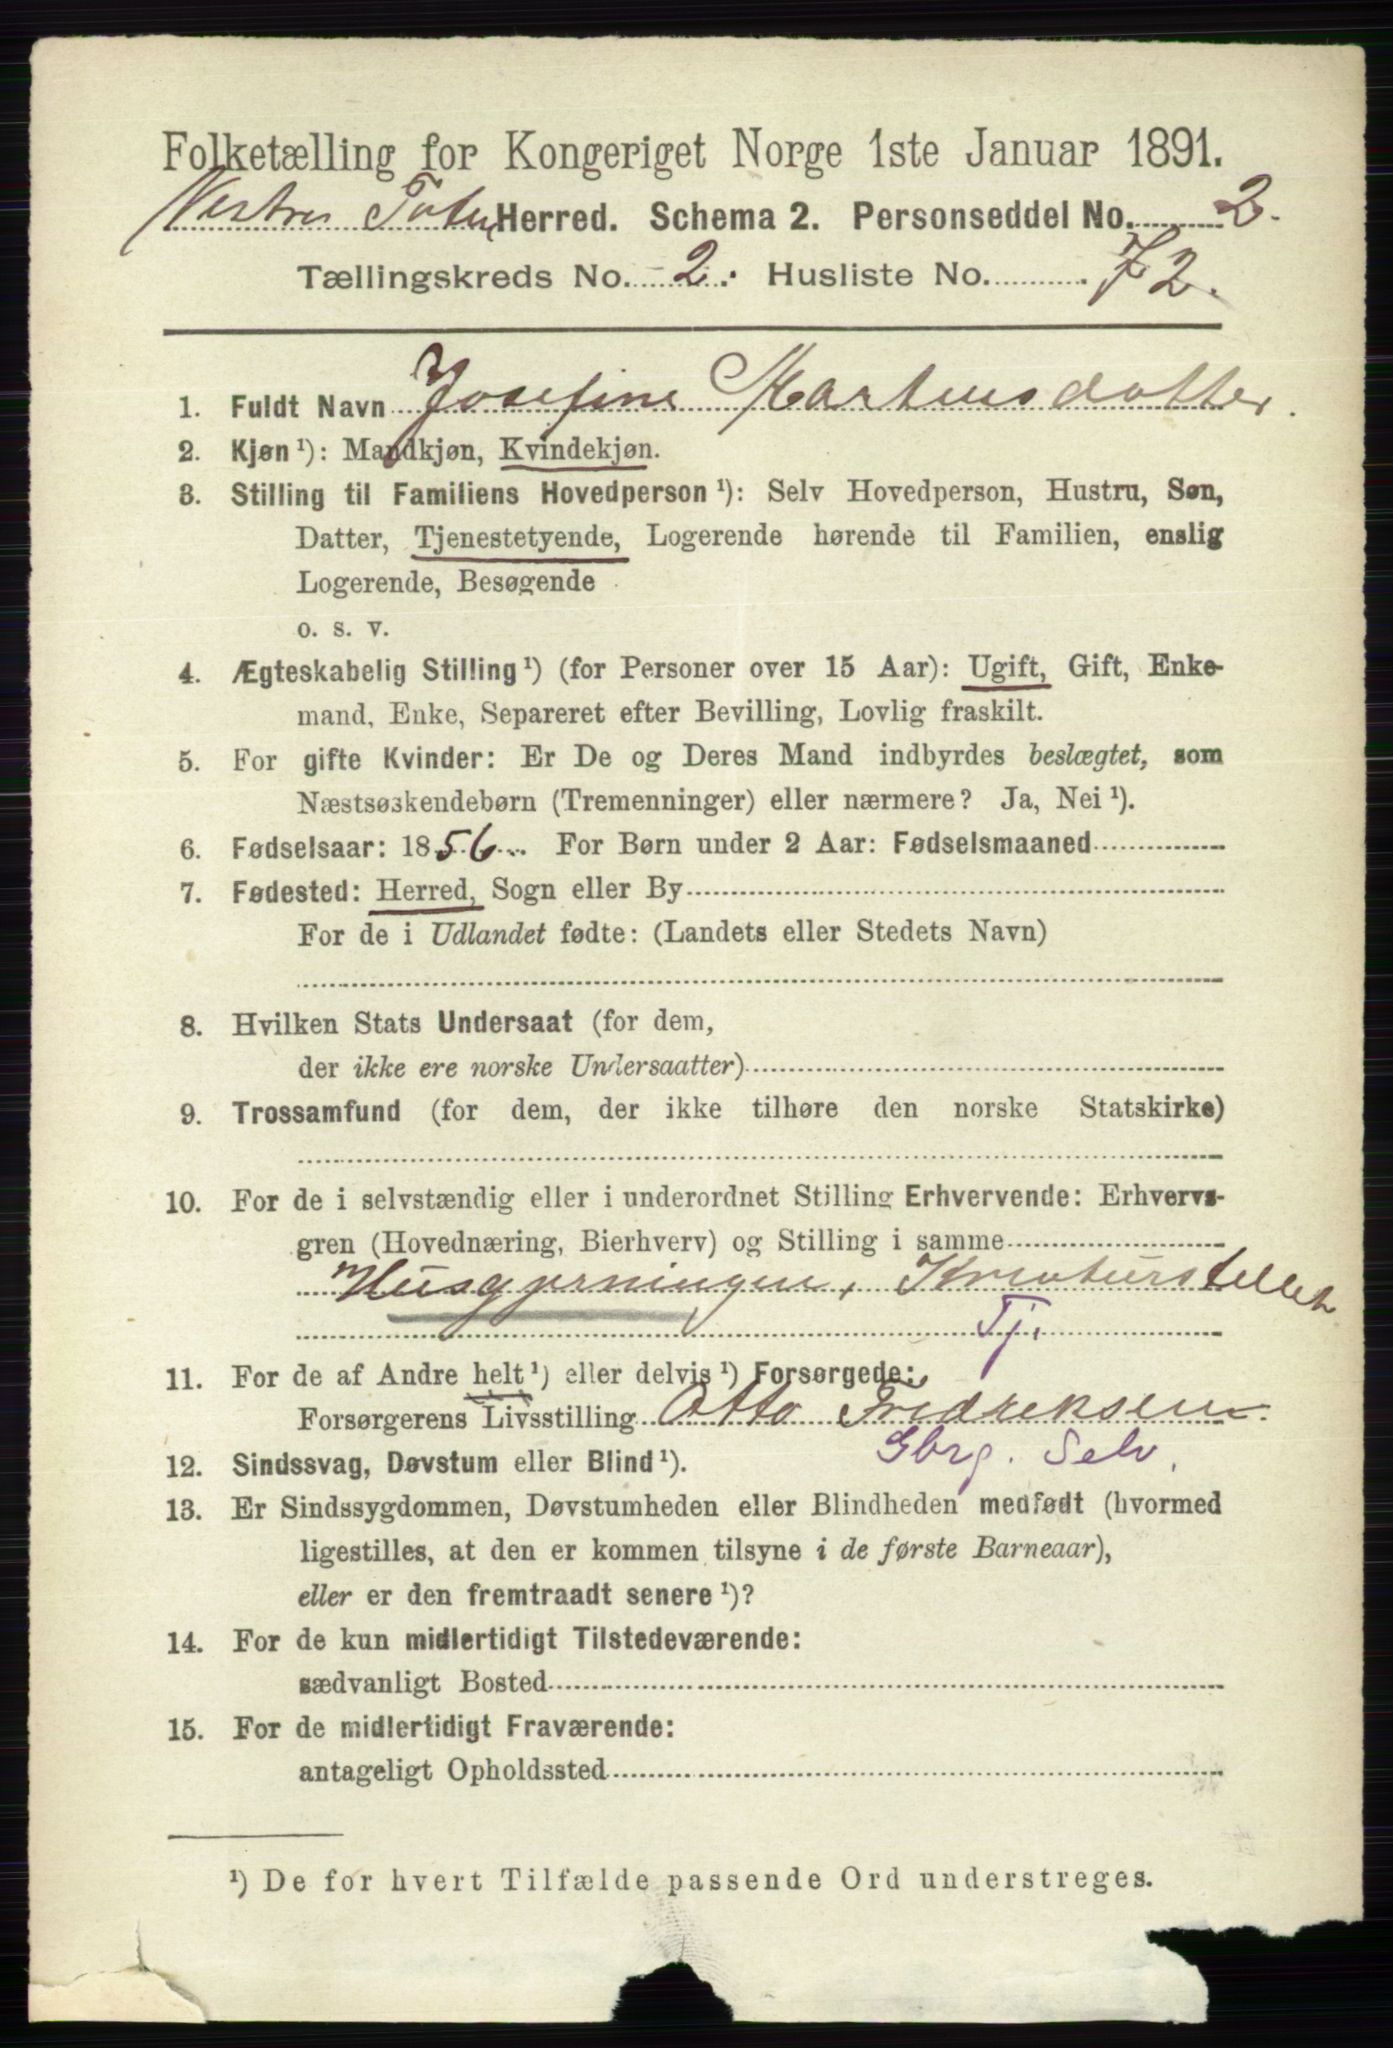 Folketælling for Kongeriget Norge 1ste Januar 1891.
Vestre Toten Herred. Schema 2. Personseddel No. 2.
Tællingskreds No. 2. Husliste No. 72.
1. Fuldt Navn Josefine Martensdotter.
2. Kjøn ¹): Mandkjøn, Kvindekjøn.
3. Stilling til Familiens Hovedperson ¹): Selv Hovedperson, Hustru, Søn,
Datter, Tjenestetyende, Logerende hørende til Familien, enslig
Logerende, Besøgende
o. s. v.
4. Ægteskabelig Stilling ¹) (for Personer over 15 Aar): Ugift, Gift, Enke-
mand, Enke, Separeret efter Bevilling, Lovlig fraskilt.
5. For gifte Kvinder: Er De og Deres Mand indbyrdes beslægtet, som
Næstsøskendebørn (Tremenninger) eller nærmere? Ja, Nei ¹).
6. Fødselsaar: 1856. For Børn under 2 Aar: Fødselsmaaned
7. Fødested: Herred, Sogn eller By
For de i Udlandet fødte: (Landets eller Stedets Navn)
8. Hvilken Stats Undersaat (for dem,
der ikke ere norske Undersaatter)
9. Trossamfund (for dem, der ikke tilhøre den norske Statskirke)
10. For de i selvstændig eller i underordnet Stilling Erhvervende: Erhvervs-
gren (Hovednæring, Bierhverv) og Stilling i samme
Husgjerningen, Kreaturstellet
Tj.
11. For de af Andre helt ¹) eller delvis ¹) Forsørgede:
Forsørgerens Livsstilling Otto Fredreksen.
Gbrg. Selv.
12. Sindssvag, Døvstum eller Blind ¹).
13. Er Sindssygdommen, Døvstumheden eller Blindheden medfødt (hvormed
ligestilles, at den er kommen tilsyne i de første Barneaar),
eller er den fremtraadt senere ¹)?
14. For de kun midlertidigt Tilstedeværende:
sædvanligt Bosted
15. For de midlertidigt Fraværende:
antageligt Opholdssted
¹) De for hvert Tilfælde passende Ord understreges.